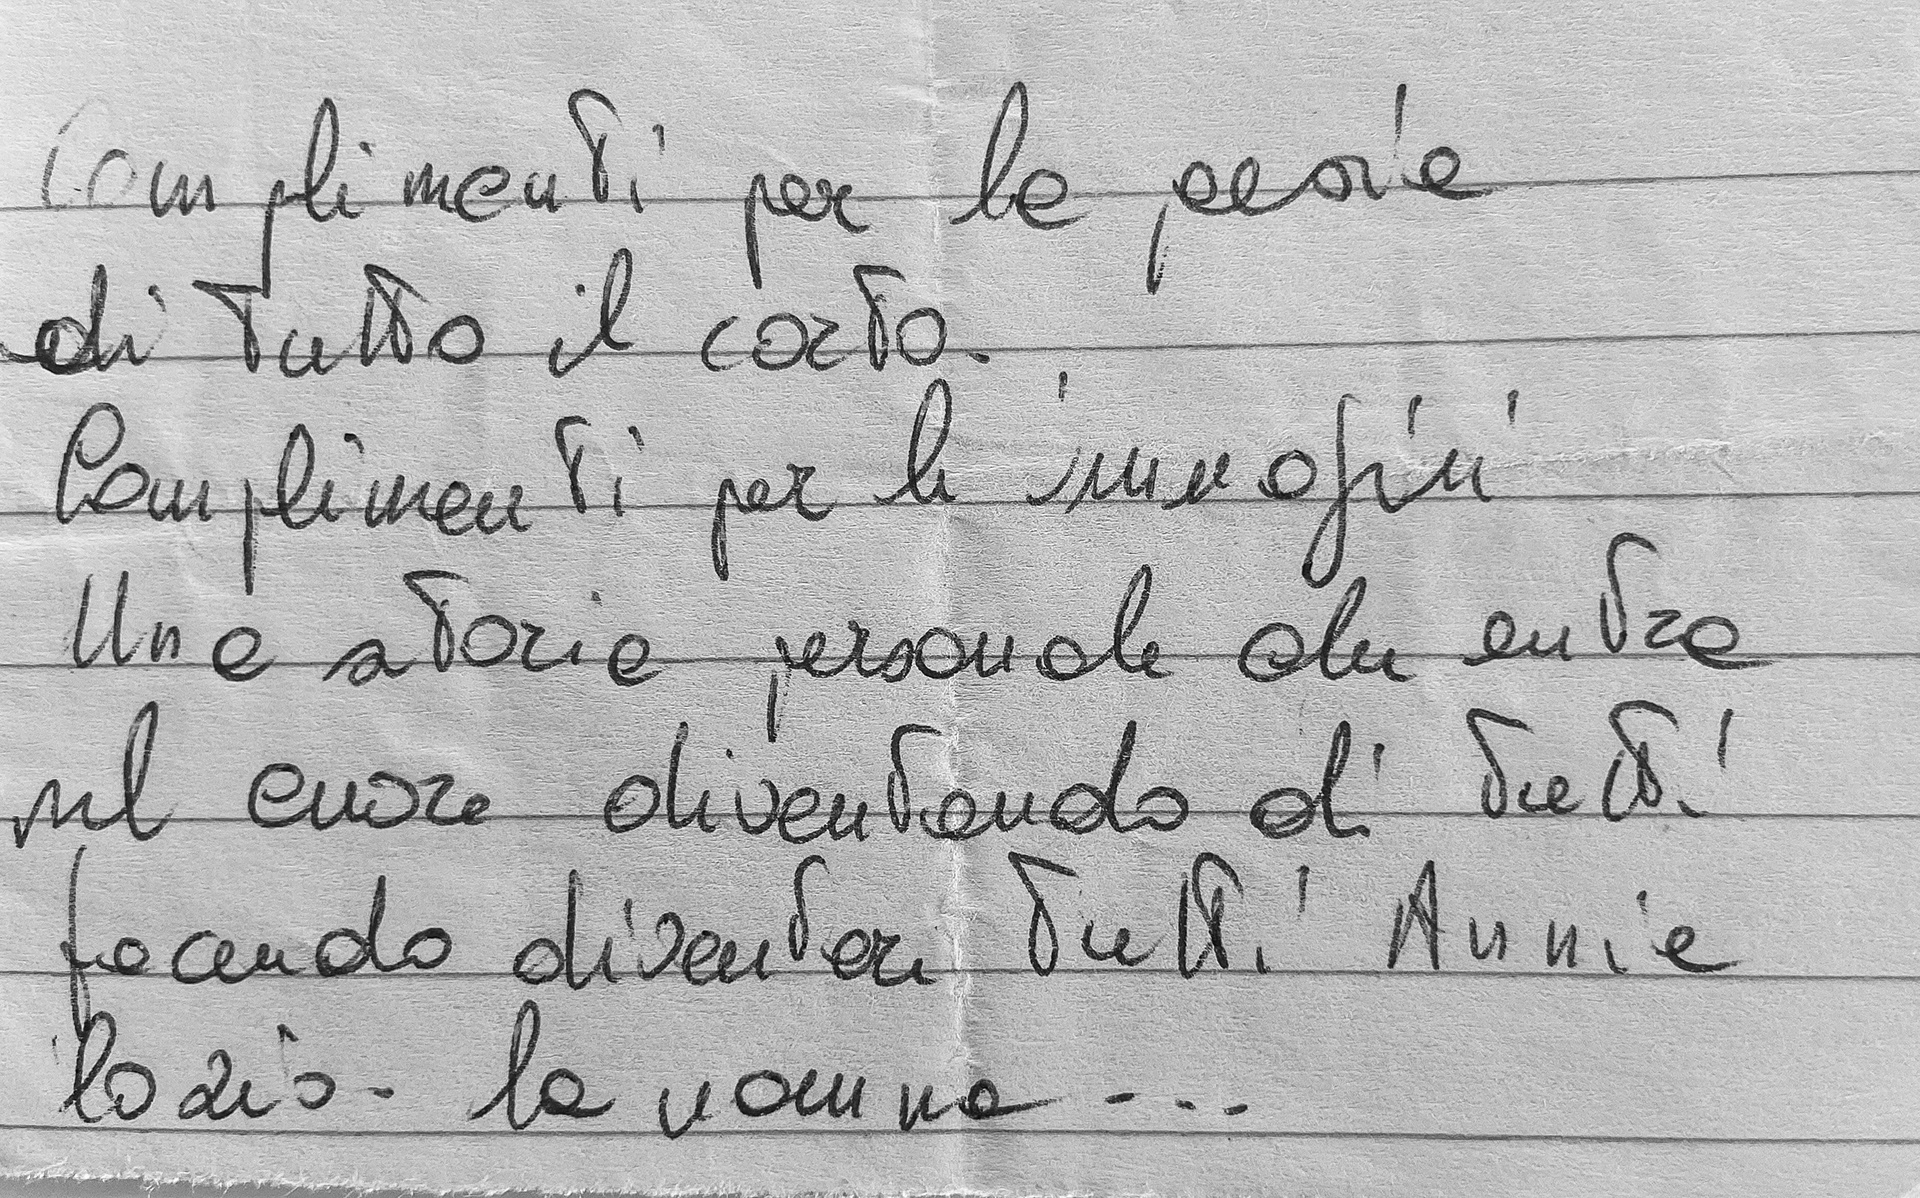 Complimenti per la poesia
di tutto il corto.
Complimenti per le immagini
Una storia personale che entra
nel cuore diventando di tutti
facendo diventare tutti Annie
lo zio. la nonna ...